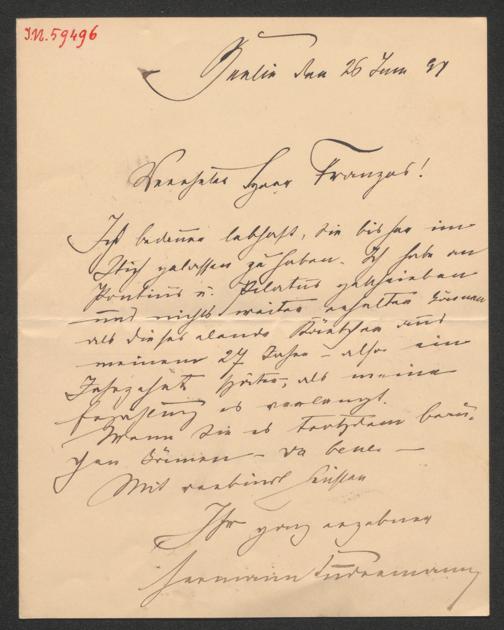 I.N. 59496
Berlin den 26 Juni 97
Verehrter Herr Franzos!
Ich bedaure lebhaft, Sie bisher im
Stich gelassen zu haben. Ich habe an
Pontius u. Pilatus geschrieben
und nichts weiter erhalten können
als dieses elende Bildchen aus
meinem 27 Jahre – also ein
Jahrzehnt später, als meine
Erzählung es verlangt.
Wenn Sie es trotzdem brau-
chen können – va bene –
Mit verbindl Grüßen
Ihr ganz ergebner
Hermann Sudermann